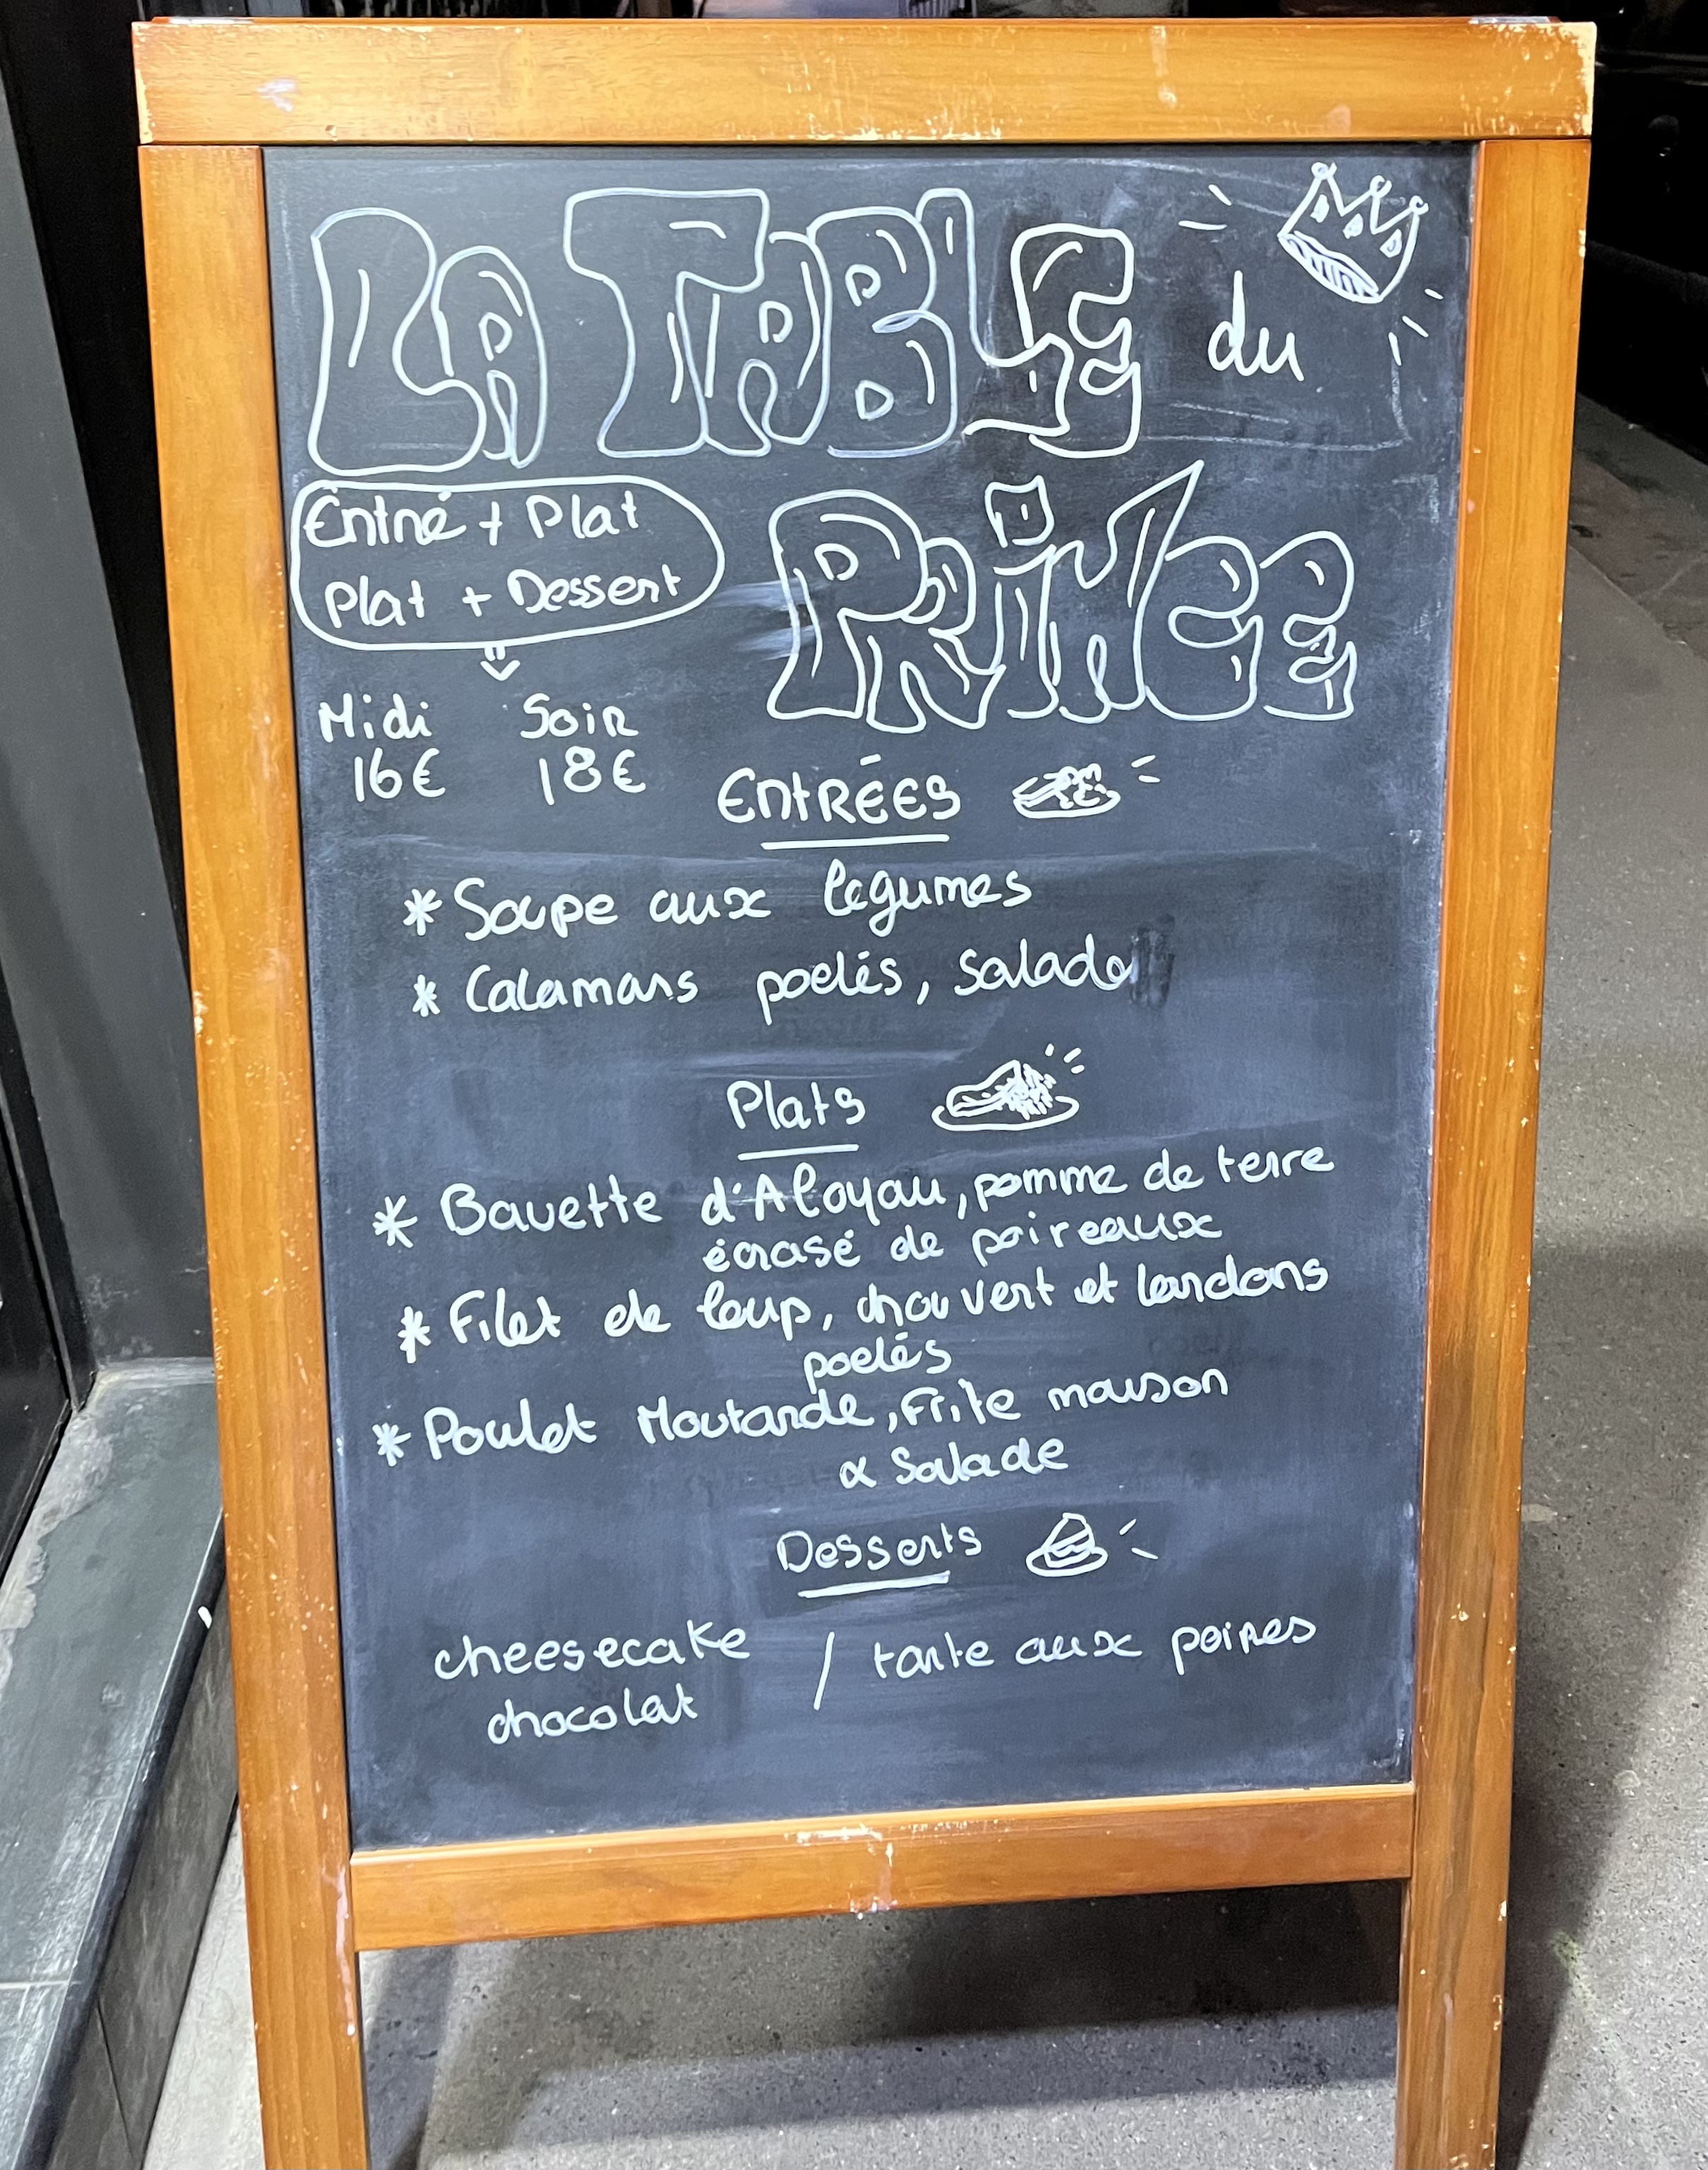 LA TABLE du
PRINCE
Entré + Plat
Plat + Dessert
Midi Soir
16€ 18€
ENtRÉES
* Soupe aux legumes
* Calamars poelés, Salade
Plats
* Bavette d'Aloyau, pomme de terre
écrasé de poireaux
* Filet de loup, chou vert et lardons
poelés
* Poulet Moutarde, Frite maison
& Salade
Desserts
cheesecake / tarte aux poires
chocolat